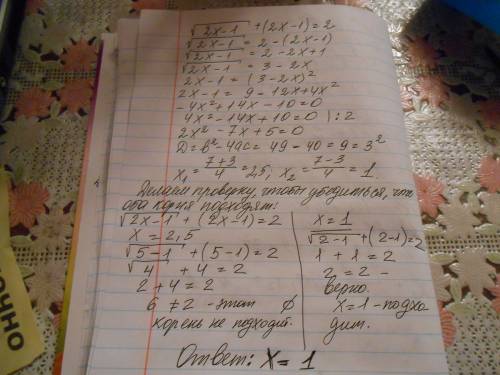 √2x-1 + (2x-1) = 2
√2x-1 = 2 - (2x-1)
√2x-1 = 2 - 2x+1
√2x-1 = 3 - 2x
2x-1 = (3-2x)²
2x-1 = 9 - 12x+4x²
-4x²+14x-10=0
4x²-14x+10=0 | :2
2x²-7x+5=0
D=b²-4ac= 49-40=9=3²
x₁ = 7+3/4 = 2,5; x₂ = 7-3/4 = 1
Делаем проверку, чтобы убедиться, что
оба корня подходят:
√2x-1 + (2x-1)=2
x = 2,5
√5-1 + (5-1)=2
√4 + 4 = 2
2 + 4 = 2
6 ≠ 2 - этот ∅
корень не подходит.
x = 1
√2-1 + (2-1)=2
1 + 1 = 2
2 = 2 -
верно.
x=1 - подхо
дит.
Ответ: x = 1